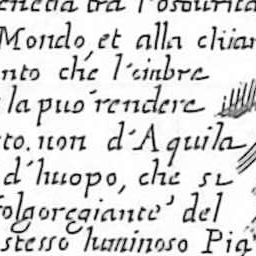 enetia tra l'oscurità
Mondo, et alla chiar
nto che l'imbre
la puo' rendere
to. non d'Aquila
d'huopo, che si
folgoreggiante' del
stesso luminoso Pia